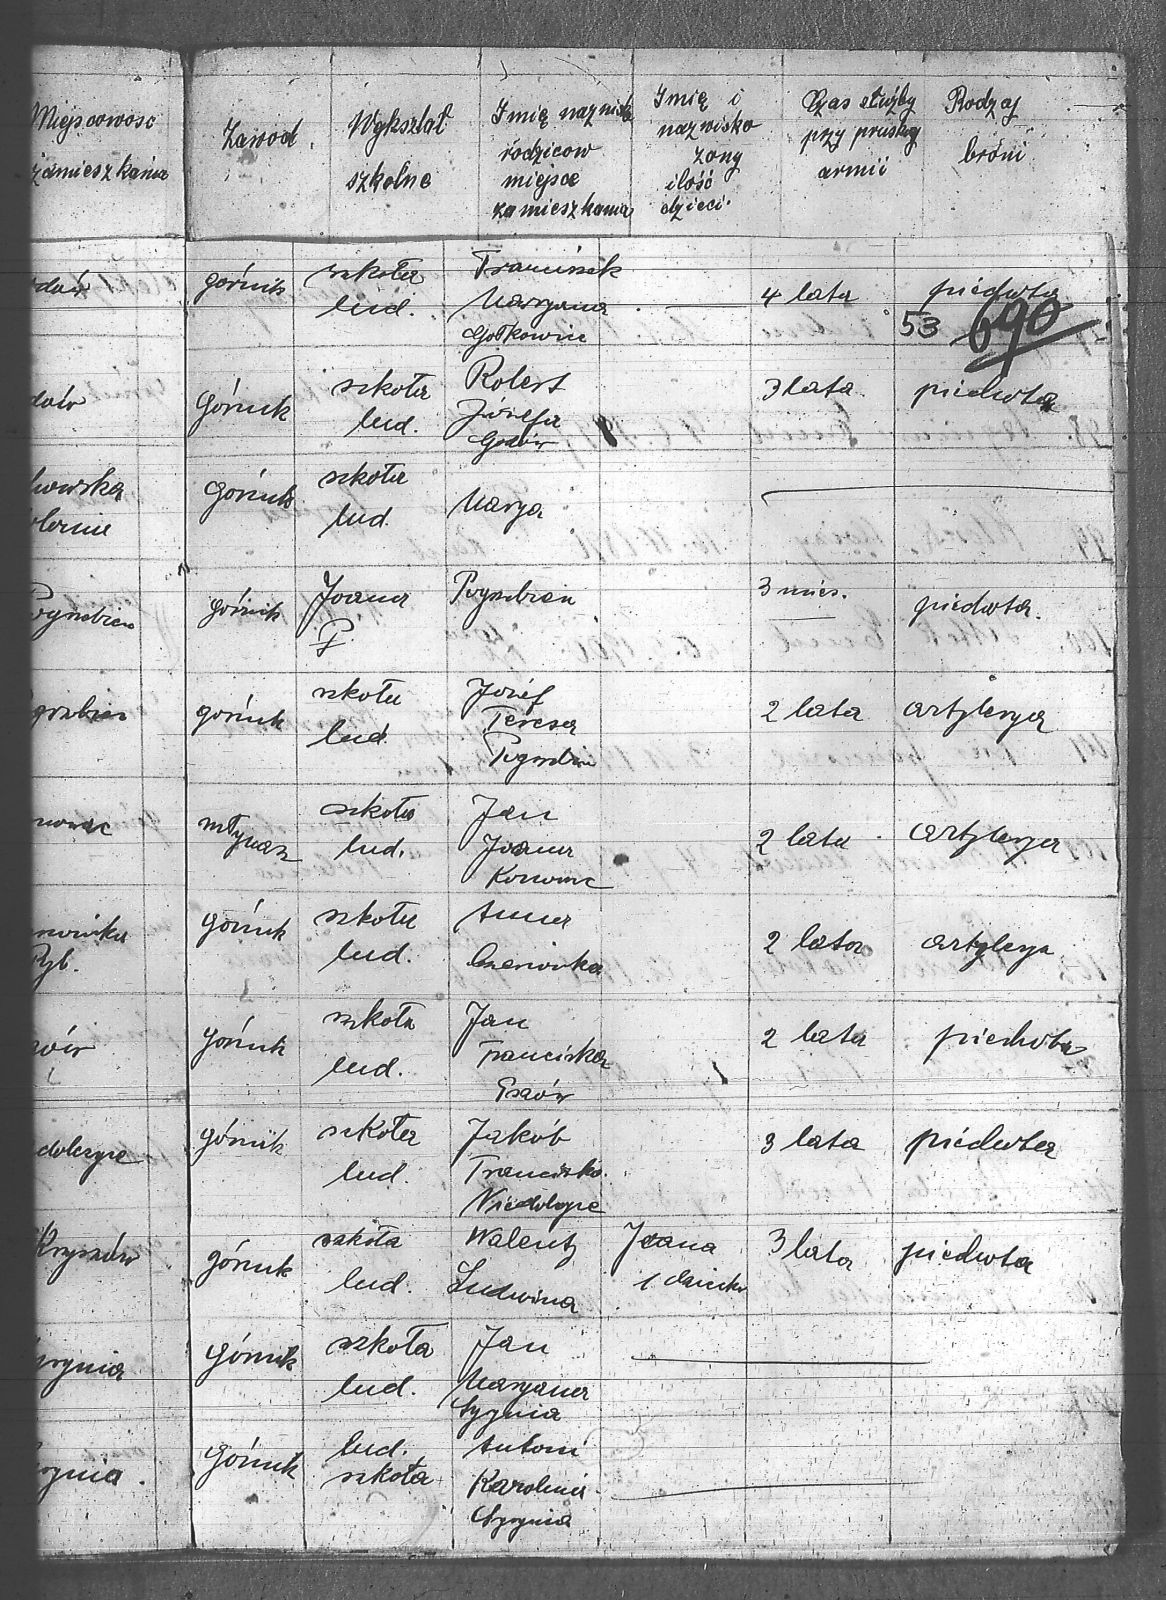 Miejscowosc
zamieszkania
Zawod.
Wykształ
szkolne
Imię nazwisk
rodzicow
miejsce
zamieszkania
Imię i
nazwisko
żony
ilość
dzieci.
Czas służby
przy pruskiej
armii
Rodzaj
broni
górnik
szkoła
lud.
Franciszek
Maryana
Gołkowice
4 lata
piechota
53 690
górnik
szkoła
lud.
Robert
Józefa
Godów
3 lata
piechota
górnik
szkoła
lud.
Marya
górnik
Joanna
P.
3 mies.
piechota.
górnik
szkoła
lud.
Józef
Teresa
2 lata
artylerya
młynarz
szkoła
lud.
Jan
Joanna
2 lata
artylerya
Ryb.
górnik
szkoła
lud.
Anna
Czerwionka
2 lata
artylerya
górnik
szkoła
lud.
Jan
Franciszka
2 lata
piechota
górnik
szkoła
lud.
Jakób
Franciszka
3 lata
piechota
Kryszów
górnik
szkoła
lud.
Walenty
Ludwina
Joana
1 dziecko
3 lata
piechota
górnik
szkoła
lud.
Jan
Maryana
Syrynia
górnik
lud.
szkoła
Antoni
Karolina
Syrynia